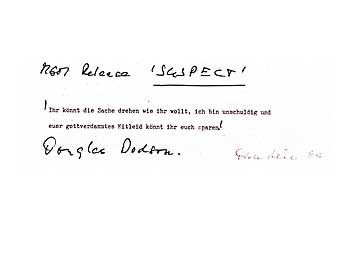 Release 'SUSPECT'
! Ihr könnt die Sache drehen wie ihr wollt, ich bin unschuldig und
euer gottverdammtes Mitleid könnt ihr euch sparen !
Douglas Dodson.